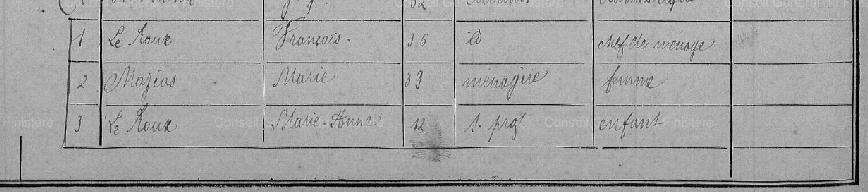 1 Le Roux François 36 id chef de ménage
2 Mazias Marie 33 ménagère femme
3 Le Roux Marie-Anne 12 s. prof enfant